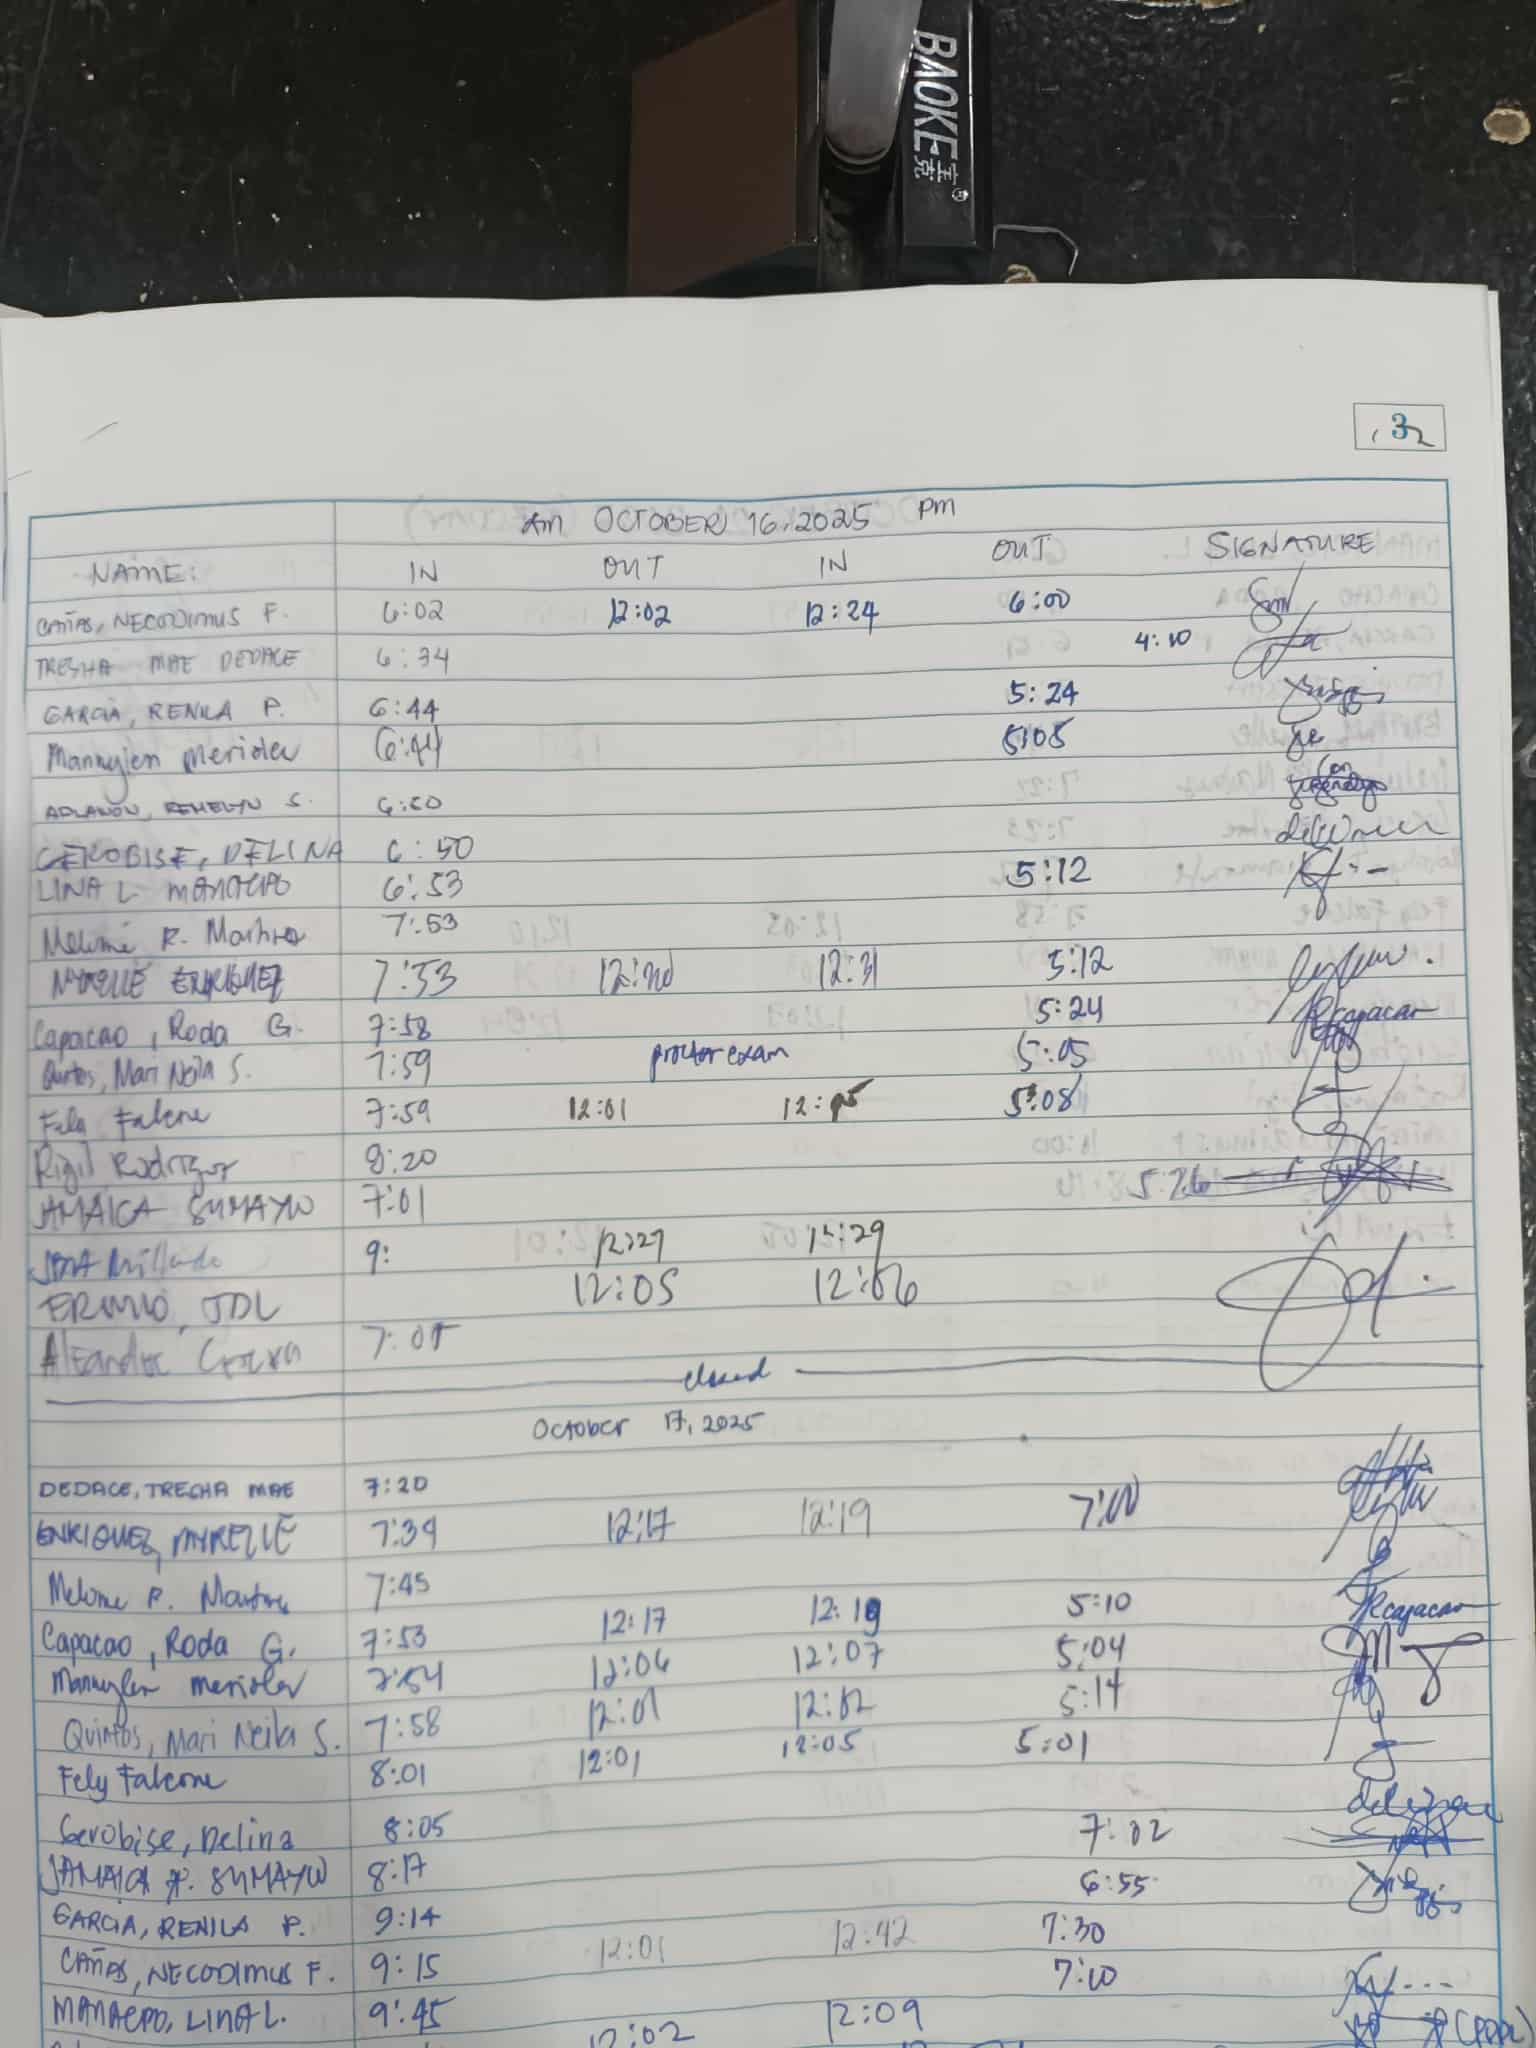 BAOKE
宝克®
32
AM OCTOBER 16, 2025 PM
NAME: IN OUT IN OUT SIGNATURE
CAÑAS, NECODIMUS F. 6:02 12:02 12:24 6:00
TRESHA MAE DEDACE 6:34 4:10
GARCIA, RENILA P. 6:44 5:24
Mannylen Meriales 6:44 5:05
REMELYN S. 6:50
GEROBISE, DELINA 6:50
LINA L. MANACPO 6:53 5:12
Melome R. Martinez 7:53
MYRELLE ENRIQUEZ 7:53 12:30 12:31 5:12
Capacao, Roda G. 7:58 5:24 Rcapacao
Quintos, Mari Neila S. 7:59 proctor exam 5:05
Fely Falcone 7:59 12:01 12:05 5:08
Rigil Rodriguez 8:20
JAMAICA SUMAYO 7:01 5:26
9: 12:27 12:29
JDL 12:05 12:06
7:05
closed
October 17, 2025
DEDACE, TRECHA MAE 7:20
ENRIQUEZ, MYRELLE 7:39 12:17 12:19 7:00
Melome R. Martinez 7:45
Capacao, Roda G. 7:53 12:17 12:19 5:10 Rcapacao
Mannylen Meriales 7:54 12:06 12:07 5:04
Quintos, Mari Neila S. 7:58 12:01 12:02 5:14
Fely Falcone 8:01 12:01 12:05 5:01
Gerobise, Delina 8:05
JAMAICA P. SUMAYO 8:17 7:02
GARCIA, RENILA P. 9:14 6:55
CAÑAS, NECODIMUS F. 9:15 12:01 12:42 7:30
MANACPO, LINA L. 9:45 7:10
12:02 12:09